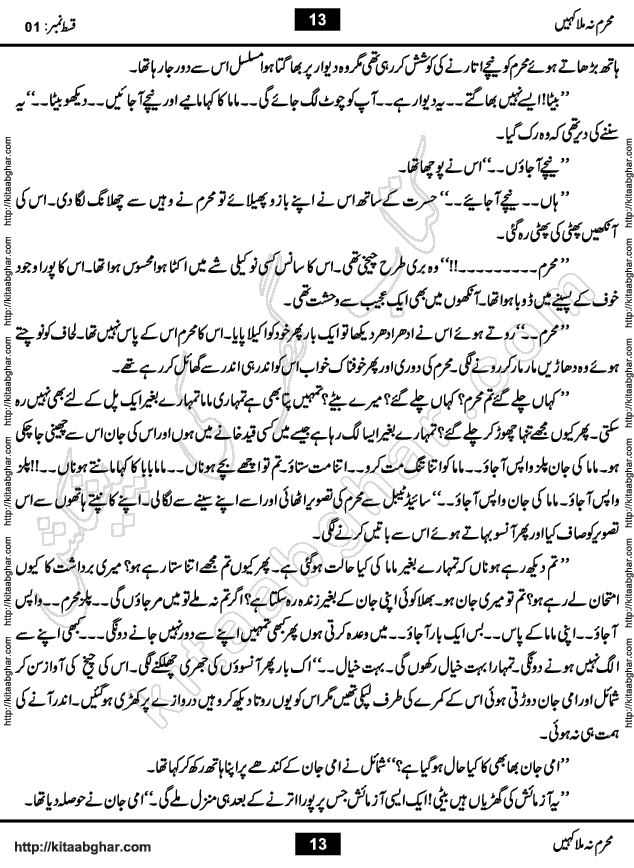 محرم نہ ملا کہیں
13
قسط نمبر: 01
ہاتھ بڑھاتے ہوئے محرم کو نیچے اتارنے کی کوشش کر رہی تھی مگر وہ دیوار پر بھاگتا ہوا مسلسل اس سے دور جا رہا تھا۔
’’بیٹا! ایسے نہیں بھاگتے۔۔یہ دیوار ہے۔۔آپ کو چوٹ لگ جائے گی۔۔ماما کا کہا مانیے اور نیچے آجائیں۔۔دیکھو بیٹا۔۔‘‘یہ
سننے کی دیر تھی کہ وہ رک گیا۔
’’نیچے آجاؤں۔۔‘‘اس نے پوچھا تھا۔
’’ہاں۔۔نیچے آجائیے۔۔‘‘ حسرت کے ساتھ اس نے اپنے بازو پھیلائے تو محرم نے وہیں سے چھلانگ لگا دی۔ اس کی
آنکھیں پھٹی کی پھٹی رہ گئی۔
’’محرم۔۔۔۔۔۔۔۔۔!!‘‘ وہ بری طرح چیخی تھی۔ اس کا سانس کسی نوکیلی شے میں اکٹا ہوا محسوس ہوا تھا۔ اس کا پورا وجود
خوف کے پسینے میں ڈوبا ہوا تھا۔ آنکھوں میں بھی ایک عجیب سے وحشت تھی۔
’’محرم۔۔‘‘ روتے ہوئے اس نے ادھر ادھر دیکھا تو ایک بار پھر خود کو اکیلا پایا۔ اس کا محرم اس کے پاس نہیں تھا۔ لحاف کو نوچتے
ہوئے وہ دھاڑیں مار مار کر رونے لگی۔ محرم کی دوری اور پھر خوفناک خواب اس کو اندر ہی اندر سے گھائل کر رہے تھے۔
’’کہاں چلے گئے تم محرم؟ کہاں چلے گئے؟ میرے بیٹے؟ تمہیں پتا بھی ہے تمہاری ماما تمہارے بغیر ایک پل کے لئے بھی نہیں رہ
سکتی۔ پھر کیوں مجھے تنہا چھوڑ کر چلے گئے؟ تمہارے بغیر ایسا لگ رہا ہے جیسے میں کسی قید خانے میں ہوں اور اس کی جان اس سے چھینی جا چکی
ہو۔ ماما کی جان پلز واپس آجاؤ۔۔ماما کو اتنا تنگ مت کرو۔۔اتنا مت ستاؤ۔ تم تو اچھے بچے ہو ناں۔۔ماما بابا کا کہا مانتے ہو ناں۔۔!!پلز
واپس آجاؤ۔ ماما کی جان واپس آجاؤ۔۔‘‘ سائیڈ ٹیبل سے محرم کی تصویر اٹھائی اور اسے اپنے سینے سے لگا لی۔ اپنے کانپتے ہاتھوں سے اس
تصویر کو صاف کیا اور پھر آنسو بہاتے ہوئے اس سے باتیں کرنے لگی۔
’’تم دیکھ رہے ہوناں کہ تمہارے بغیر ماما کی کیا حالت ہو گئی ہے۔ پھر کیوں تم مجھے اتنا ستا رہے ہو؟ میری برداشت کا کیوں
امتحان لے رہے ہو؟ تم تو میری جان ہو۔ بھلا کوئی اپنی جان کے بغیر زندہ رہ سکتا ہے؟ اگر تم نہ ملے تو میں مر جاؤں گی۔۔پلز محرم۔۔واپس
آجاؤ۔۔اپنی ماما کے پاس۔۔بس ایک بار آجاؤ۔۔میں وعدہ کرتی ہوں پھر کبھی تمہیں اپنے سے دور نہیں جانے دونگی۔۔کبھی اپنے سے
الگ نہیں ہونے دونگی۔ تمہارا بہت خیال رکھوں گی۔ بہت خیال۔۔‘‘ اک بار پھر آنسوؤں کی جھری چھلکنے لگی۔ اس کی چیخ کی آواز سن کر
شمائل اور امی جان دوڑتی ہوئی اس کے کمرے کی طرف لپکی تھیں مگر اس کو یوں روتا دیکھ کر وہیں دروازے پر کھڑی ہو گئیں۔ اندر آنے کی
ہمت ہی نہ ہوئی۔
’’امی جان بھابھی کا کیا حال ہو گیا ہے؟‘‘ شمائل نے امی جان کے کندھے پر اپنا ہاتھ رکھ کر کہا تھا۔
’’یہ آزمائش کی گھڑیاں ہیں بیٹی! ایک ایسی آزمائش جس پر پورا اترنے کے بعد ہی منزل ملے گی۔‘‘ امی جان نے حوصلہ دیا تھا۔
http://kitaabghar.com
http://kitaabghar.com
http://kitaabghar.com
http://kitaabghar.com
http://kitaabghar.com
http://kitaabghar.com
http://kitaabghar.com
http://kitaabghar.com
http://kitaabghar.com
http://kitaabghar.com
http://kitaabghar.com
http://kitaabghar.com
کتاب گھر کی پیشکش
kitaabghar.com
محرم نہ ملا کہیں
13
http://kitaabghar.com